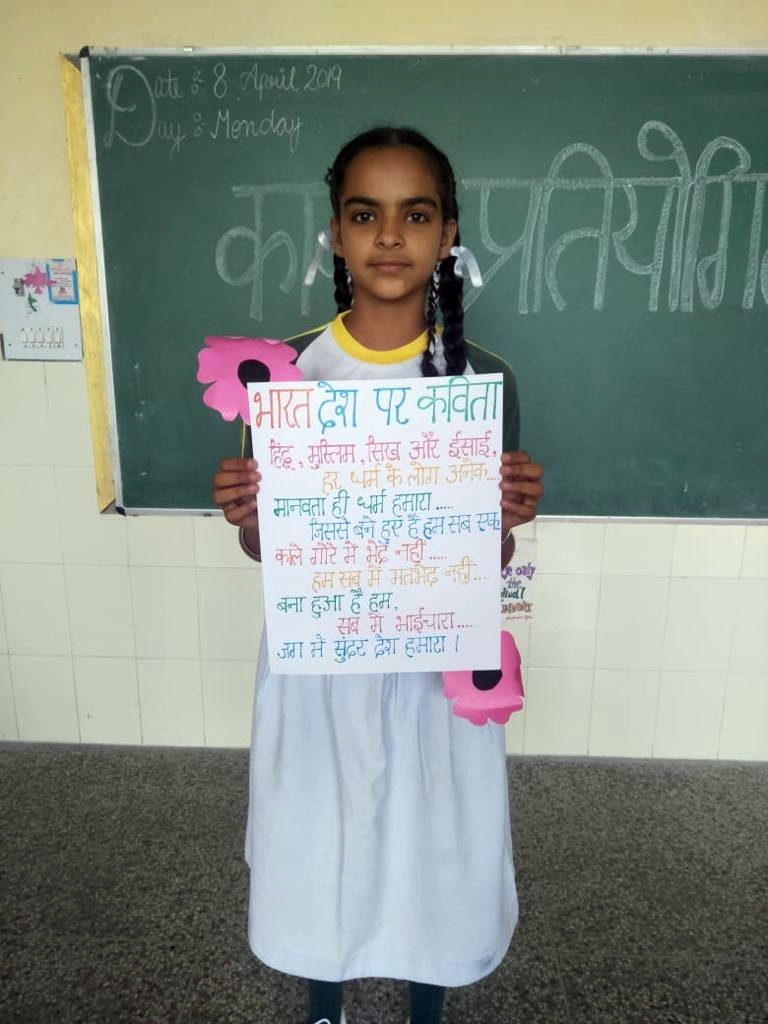 Date : 8 April 2019
Day : Monday
का प्रतियोगि
भारत देश पर कविता
हिंदू, मुस्लिम, सिख और ईसाई,
हर धर्म के लोग अनेक....
मानवता ही धर्म हमारा.....
जिससे बने हुए है हम सब एक
काले गोरे में भेद नहीं.....
हम सब में मतभेद नहीं....
बना हुआ है हम,
सब में भाईचारा.....
जग में सुंदर देश हमारा।
only
the